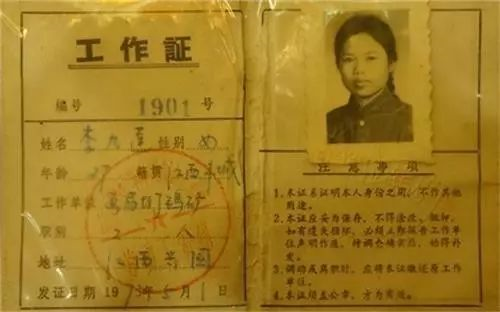 工作証
編号 1901 号
姓名 李九莲 性别 女
年龄 27 籍贯 江西
工作单位 画眉坳钨矿
职别 工人
地址 江西兴国
发证日期 1973年5月1日
注意事项
1.本证系证明本人身份之用,不作其他
用途。
2.本证应妥为保存,不得涂改、抵押,
如有遗失损坏,必须立即报告工作单
位声明作废,待调查确实后,始得补
发。
3.调动或离职时,应将本证缴还原工作
单位。
4.本证须盖公章,方为有效。